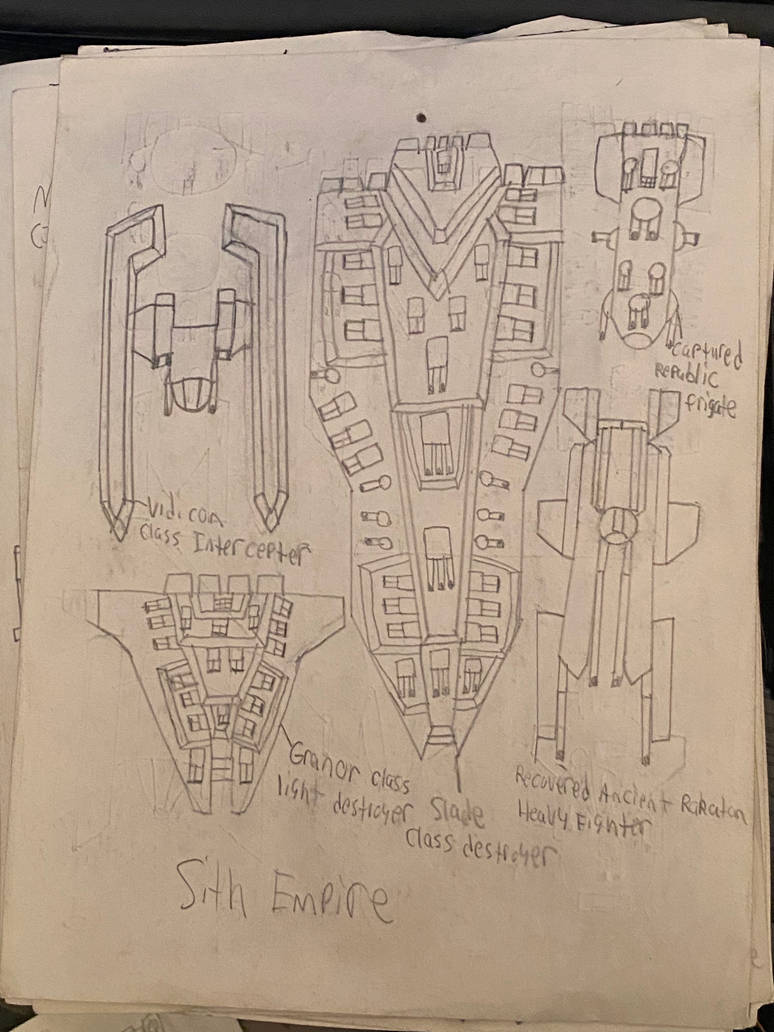 captured
Republic
frigate
Vidicon
Class Intercepter
Granor class
light destroyer
Slade
Class destroyer
Recovered Ancient Rakatan
Heavy Fighter
Sith Empire